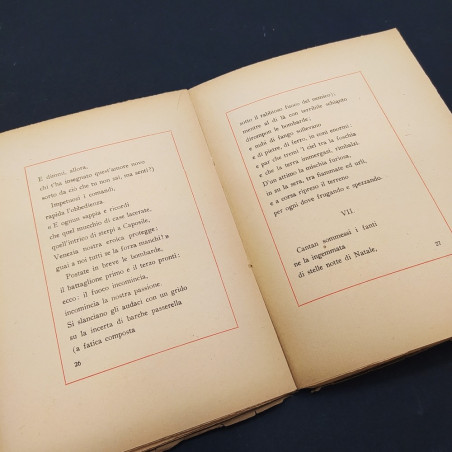 E dimmi, allora,
chi t'ha insegnato quest'amore novo
sorto da ciò che tu non sai, ma senti?)
Impetuosi i comandi,
rapida l'obbedienza.
« E ognun sappia e ricordi
che quel mucchio di case lacerate,
quell'intrico di sterpi a Caposile,
Venezia nostra eroica protegge:
guai a noi tutti se la forza manchi! »
Postate in breve le bombarde,
il battaglione primo e il terzo pronti:
ecco: il fuoco incomincia,
incomincia la nostra passione.
Si slanciano gli audaci con un grido
su la incerta di barche passerella
(a fatica composta
26
sotto il rabbioso fuoco del nemico);
mentre al di là con terribile schianto
dirompon le bombarde;
e nubi di fango sollevano
a di pietre, di ferro, in coni enormi:
e par che tremi 't ciel tra la foschia
e che la terra immergasi, rimbalzi.
D'un attimo la mischia furiosa,
in su la sera, tra fiammate ed urli,
e a corsa ripreso il terreno
per ogni dove frugando e spezzando.
VII.
Cantan sommessi i fanti
ne la ingemmata
di stelle notte di Natale,
27